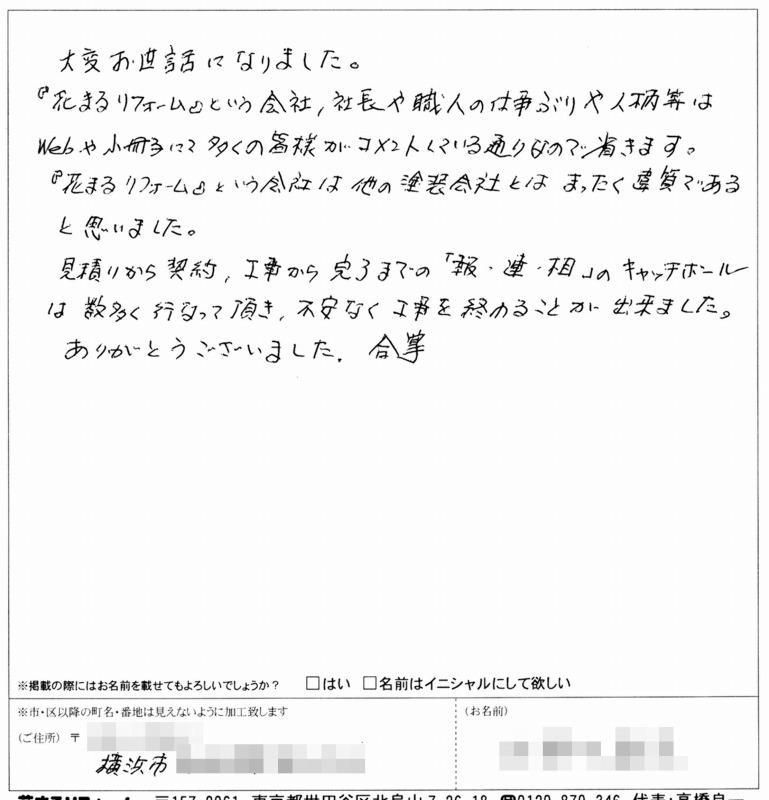 大変お世話になりました。
『花まるリフォーム』という会社,社長や職人の仕事ぶりや人柄等は
Webや小冊子にて多くの皆様がコメントしている通りなので省きます。
『花まるリフォーム』という会社は他の塗装会社とはまったく異質である
と思いました。
見積りから契約,工事から完了までの「報・連・相」のキャッチボール
は数多く行なって頂き,不安なく工事を終わることが出来ました。
ありがとうございました. 合掌
※掲載の際にはお名前を載せてもよろしいでしょうか？ □はい □名前はイニシャルにして欲しい
※市・区以降の町名・番地は見えないように加工致します
(お名前)
(ご住所) 〒
横浜市